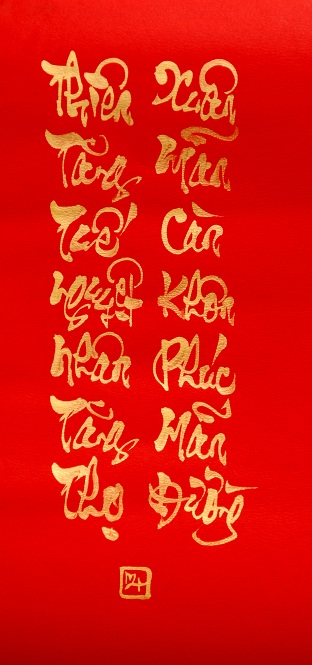 Thiên Tăng Tuế Nguyệt Nhân Tăng Thọ
Xuân Mãn Càn Khôn Phúc Mãn Đường